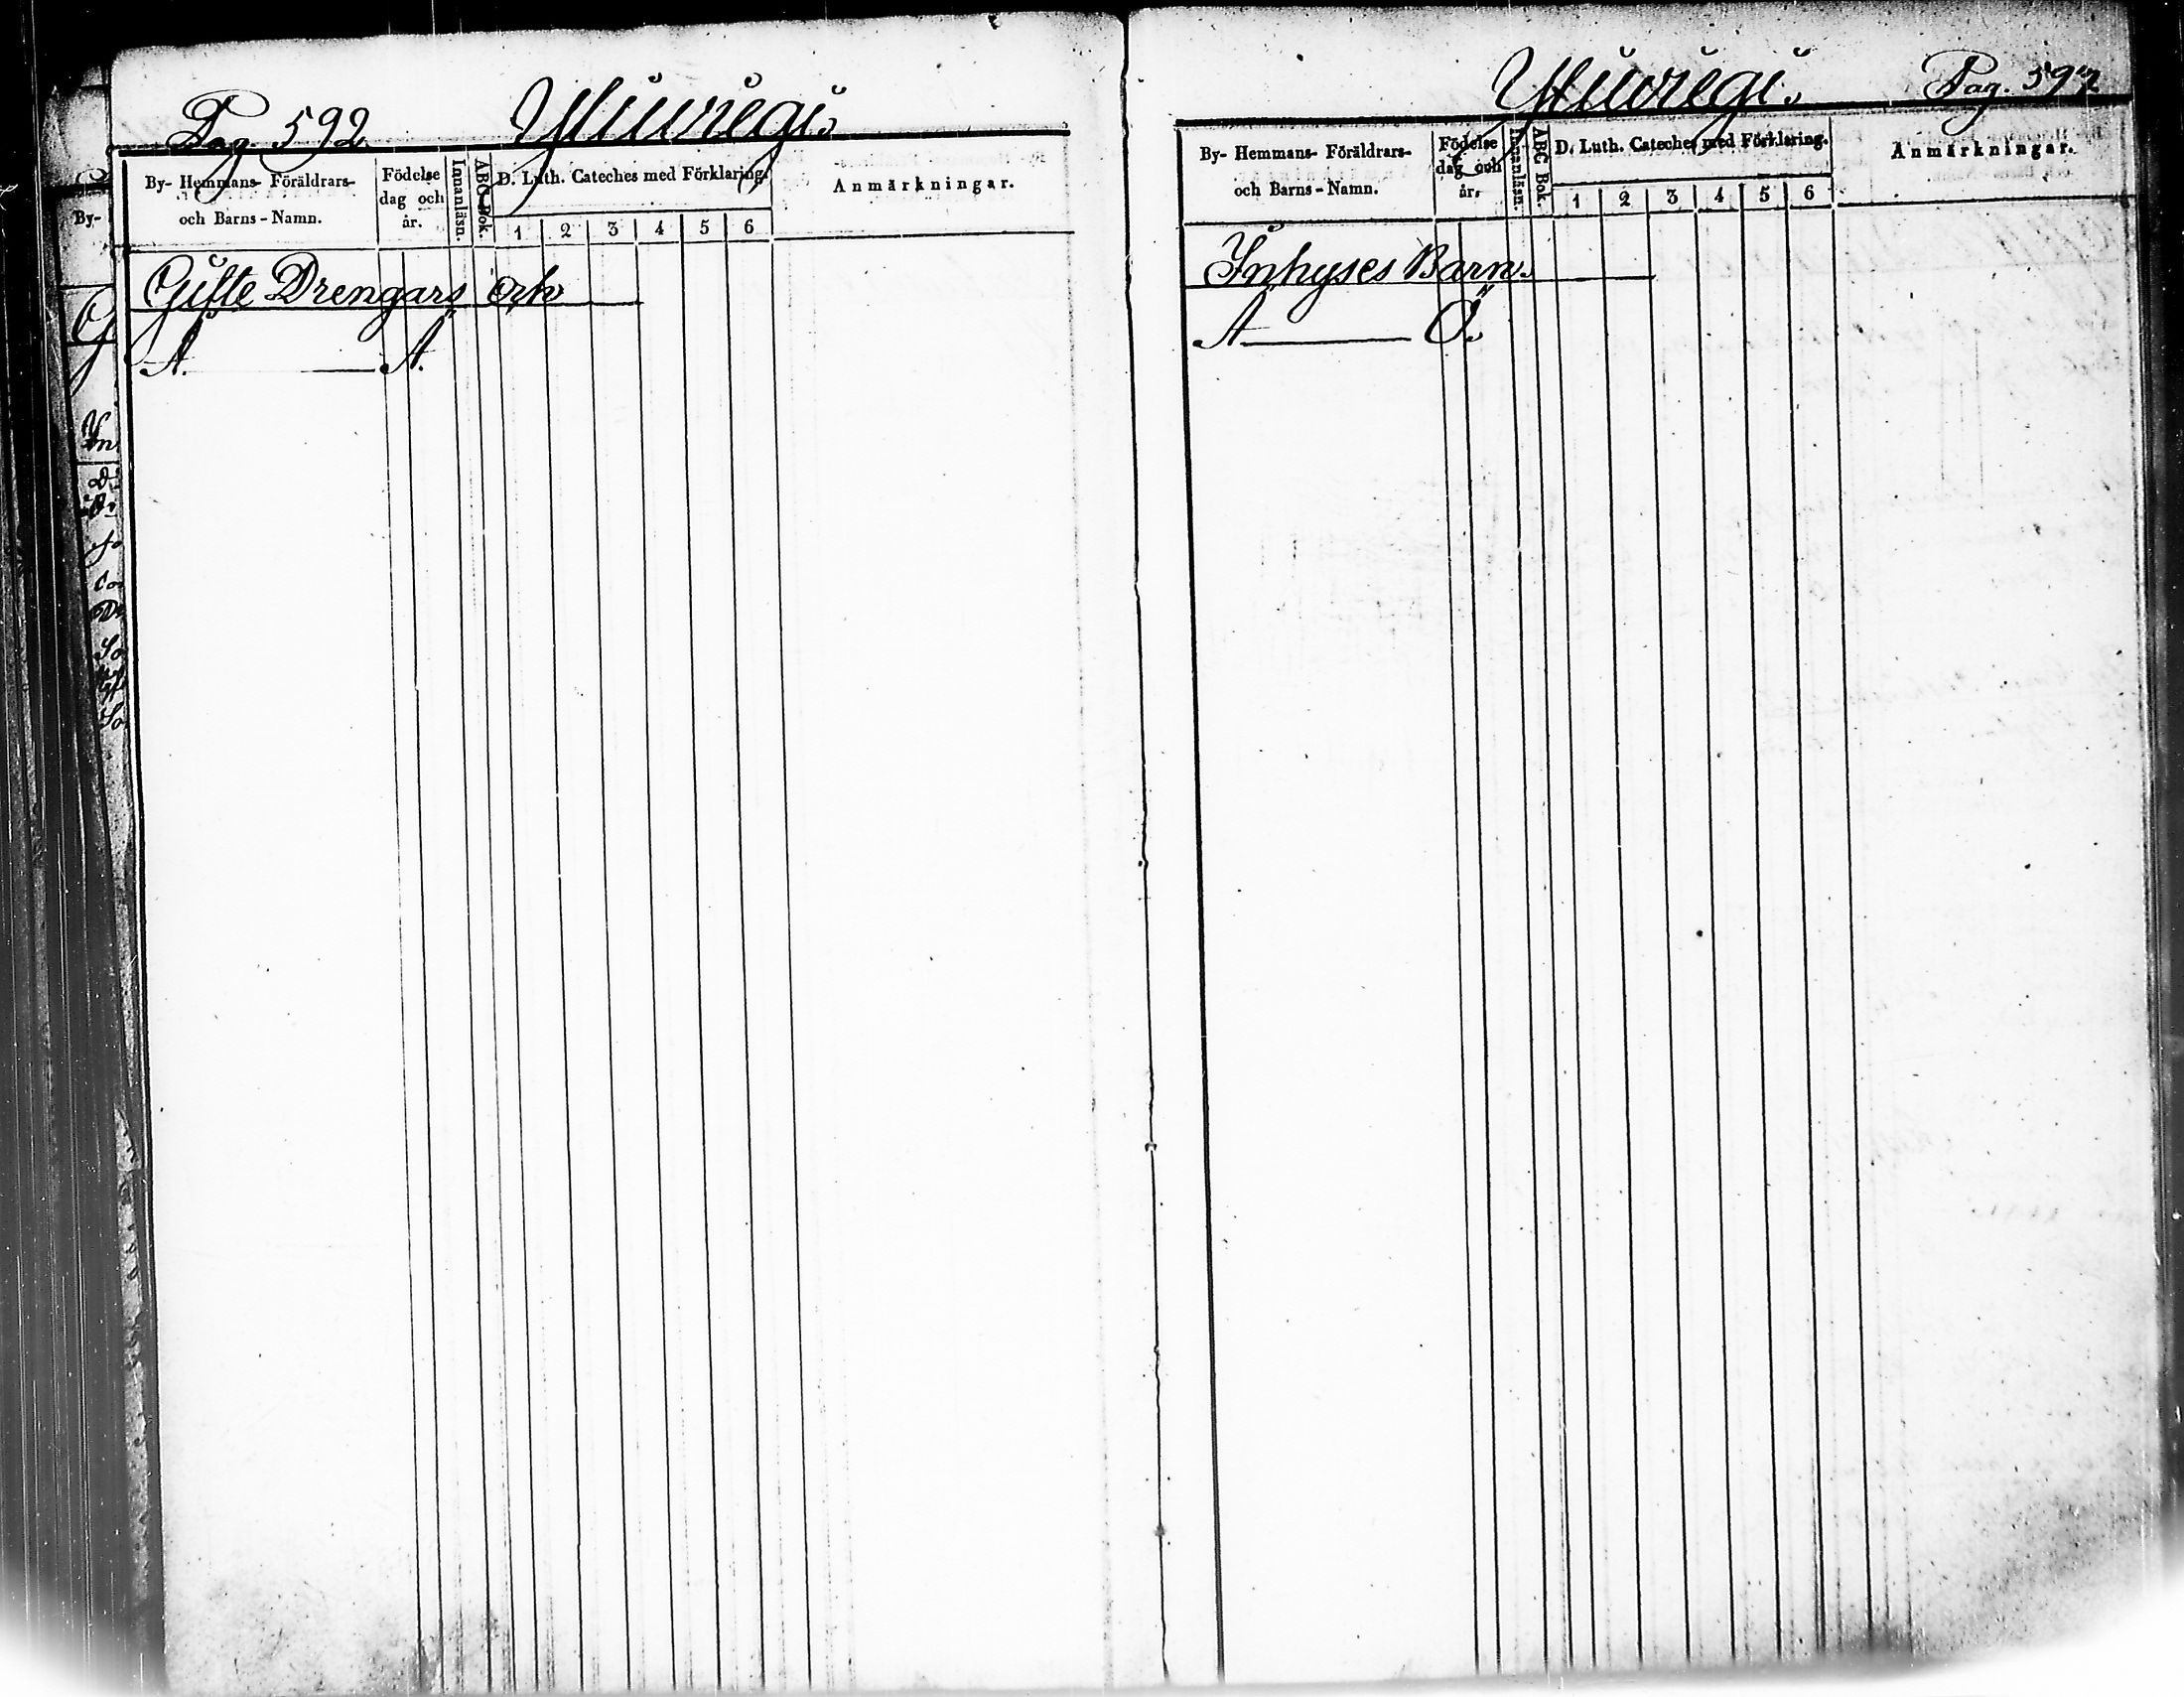 Pag. 592.
By- Hemmans- Föräldrars-
och Barns-Namn.
Födelse
dag och
år.
Innanläsn.
ABC Bok.
D. Luth. Cateches med Förklaring.
1 2 3 4 5 6
Anmärkningar.
Gifte Drengars och
A. A.
Pag. 592
By- Hemmans- Föräldrars-
och Barns-Namn.
Födelse
dag och
år.
Innanläsn.
ABC Bok.
D. Luth. Cateches med Förklaring.
1 2 3 4 5 6
Anmärkningar.
Inhyses Barn.
A Ö.
By-